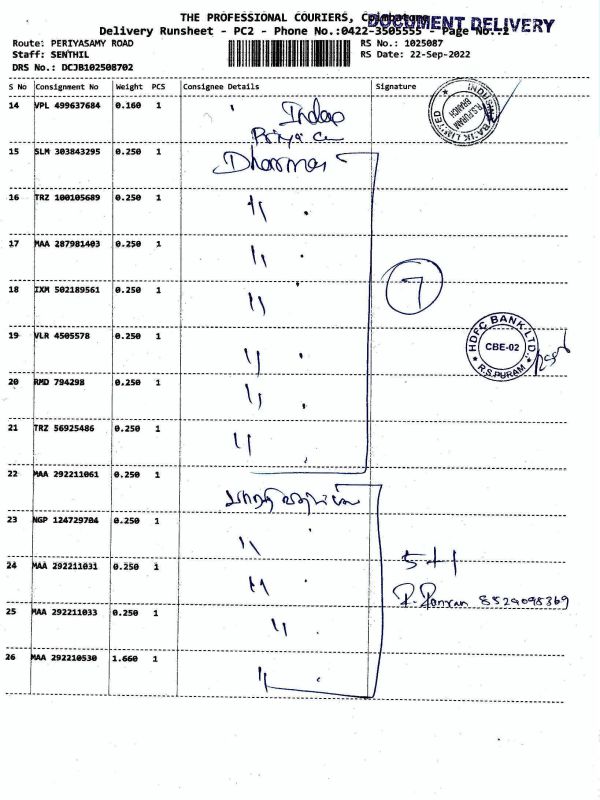 THE PROFESSIONAL COURIERS, Coimbatore
DOCUMENT DELIVERY
Delivery Runsheet - PC2 - Phone No.:0422-3505555 - Page No.:2
Route: PERIYASAMY ROAD
RS No.: 1025087
Staff: SENTHIL
RS Date: 22-Sep-2022
DRS No.: DCJB102508702
S No Consignment No Weight PCS Consignee Details Signature
14 VPL 499637684 0.160 1
INDUSIND BANK LIMITED
R.S.PURAM
BRANCH
15 SLM 303843295 0.250 1
16 TRZ 100105689 0.250 1 " .
17 MAA 287981403 0.250 1 " .
18 IXM 502189561 0.250 1 "
7
19 VLR 4505578 0.250 1 " .
HDFC BANK LTD.,
CBE-02
* R.S.PURAM *
20 RMD 794298 0.250 1 " .
21 TRZ 56925486 0.250 1 " .
22 MAA 292211061 0.250 1
23 NGP 124729704 0.250 1 " .
24 MAA 292211031 0.250 1 " .
5+1
25 MAA 292211033 0.250 1 " .
8529098369
26 MAA 292210530 1.660 1 " .